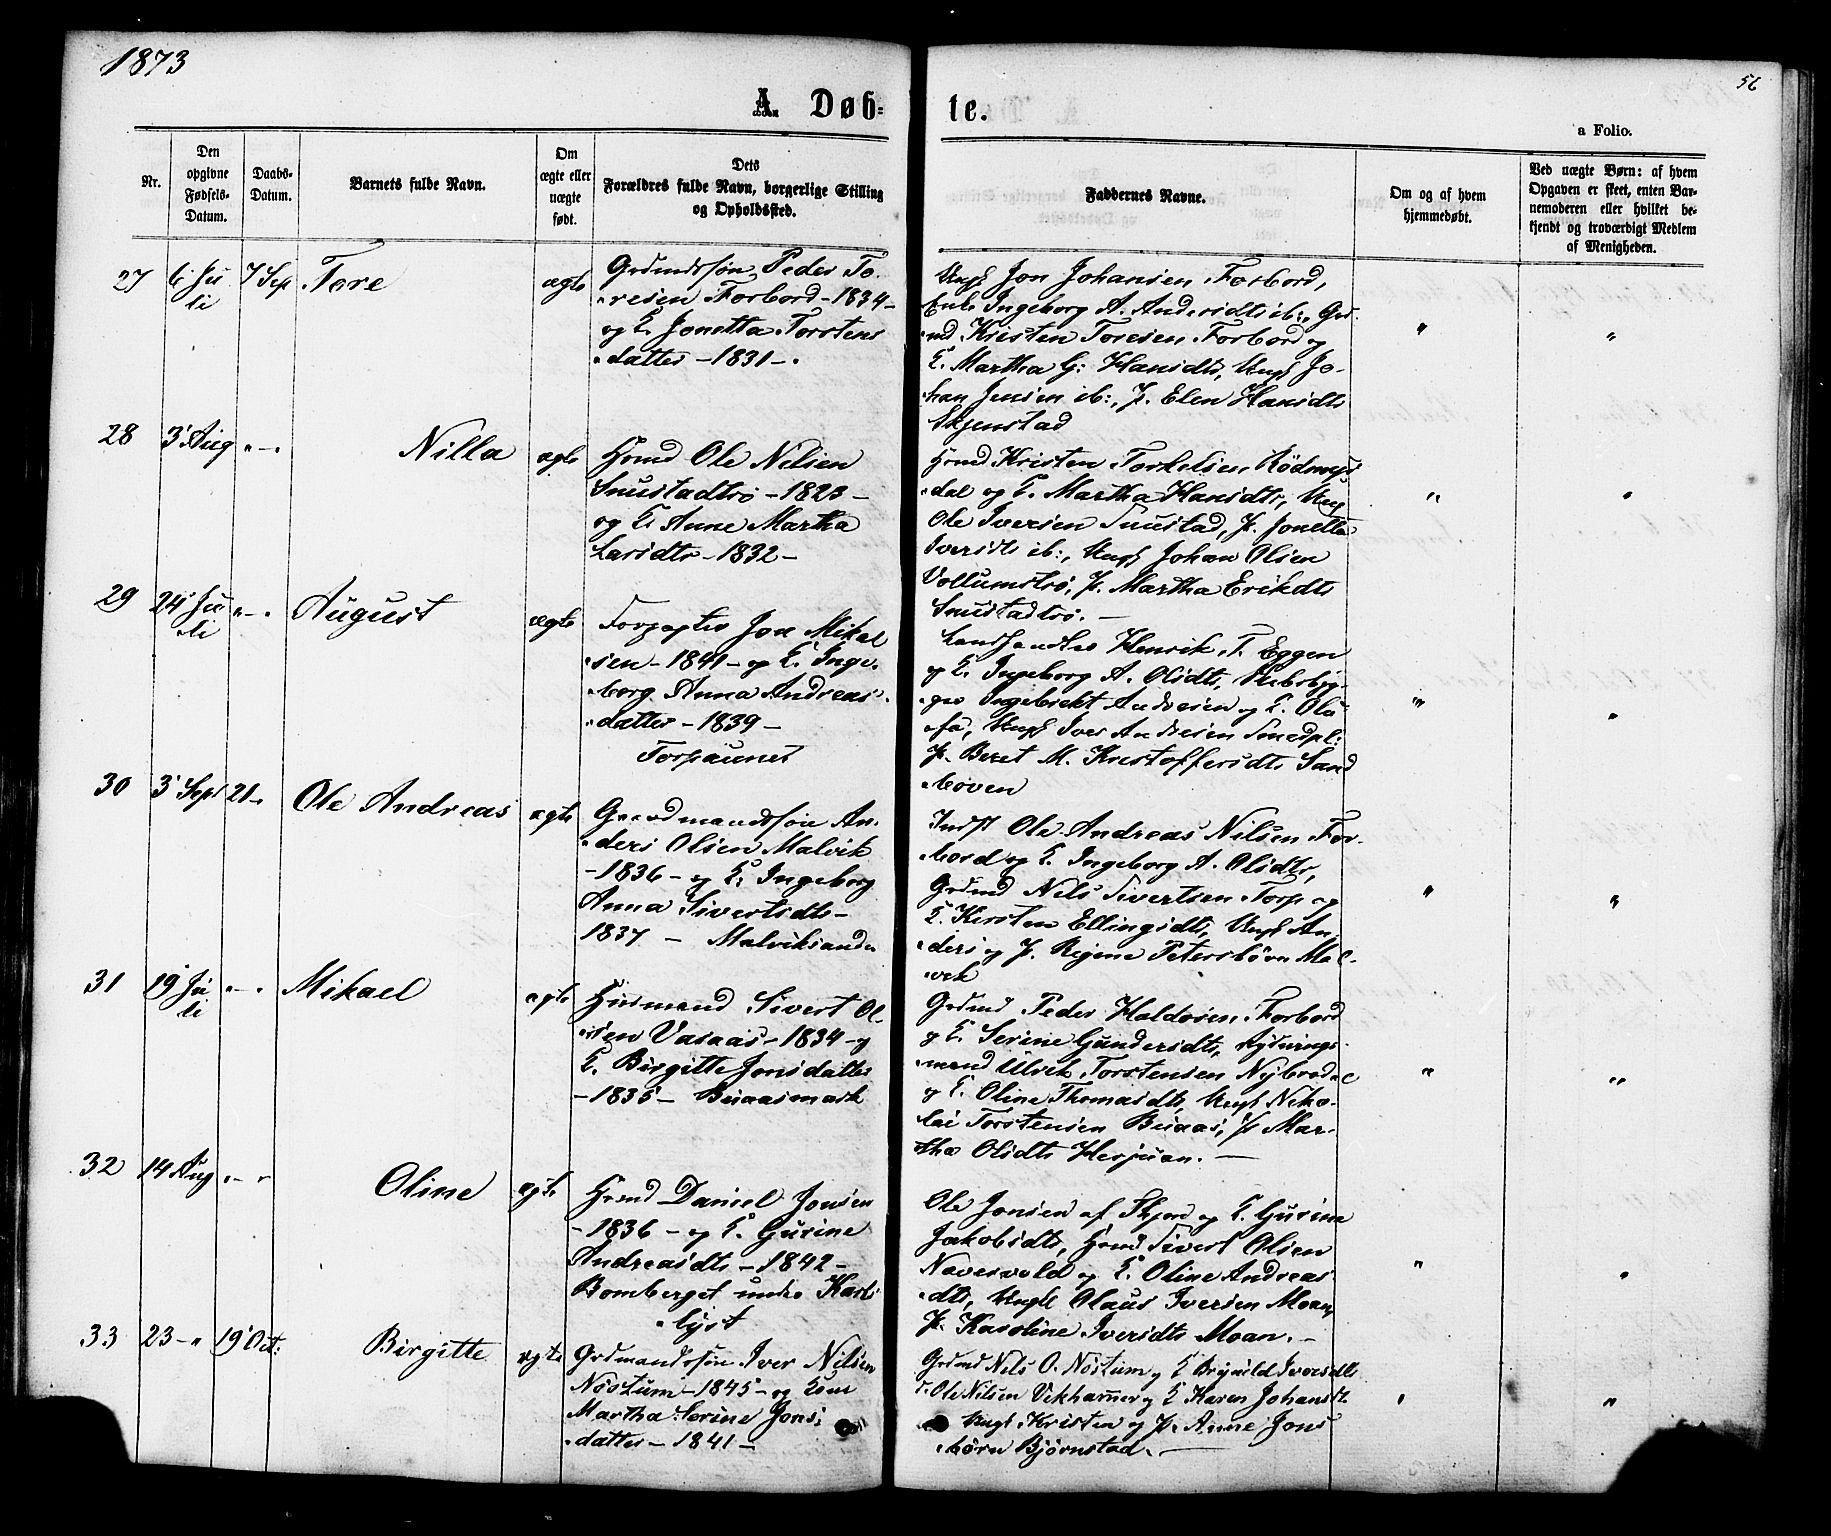 1873
56
A. Døb-
te.
a Folio.
Nr.
Den
opgivne
Fødsels-
Datum.
Daabs-
Datum.
Barnets fulde Navn.
Om
ægte eller
uægte
født.
Dets
Forældres fulde Navn, borgerlige Stilling
og Opholdssted.
Faddernes Navne.
Om og af hvem
hjemmedøbt.
Ved uægte Børn: af hvem
Opgaven er skeet, enten Bar-
nemoderen eller hvilket be-
kjendt og troværdigt Medlem
af Menigheden.
27
6 Ju
li
7 Sep
Tore
ægte
Grdmdssøn Peder To-
resen Forbord - 1834 -
og E. Jonetta Torstens
datter - 1831 -.
Ungk Jon Johansen Forbord,
Enke Ingeborg A. Andersdtr ib:, Grd-
md Kristen Toresen Forbord og
E. Martha G: Hansdtr, Ungk Jo-
han Jensen ib:, P. Elen Hansdtr
Skjenstad
"
"
28
3' Aug
" - "
Nilla
ægte
Hsmd Ole Nilsen
Snustadtrø - 1823 -
og E. Anne Martha
Larsdtr - 1832 -
Hsmd Kristen Torkelsen Rødmyrs
dal og E. Martha Hansdtr, Ungk
Ole Iversen Snustad, P. Jonetta
Iversdtr ib:, Ungk Johan Olsen
Vollumstrø, P. Martha Eriksdtr
Snustadtrø. -
"
"
29
24' Ju
li
" - "
August
ægte
Forpagter Jon Mikal
sen - 1841 - og E. Inge-
borg Anna Andreas-
datter - 1839 -
Torpaunet
Landhandler Henrik T. Eggen
og E. Ingeborg A. Olsdtr,
Ingebrekt Andersen og E. Olu
fa, Ungk Iver Andersen Smedpl:
P. Beret M. Kristoffersdtr Sand
moven
"
"
30
3' Sept
21 -
Ole Andreas
ægte
Gaardmandssøn An-
ders Olsen Malvik
- 1836 - og E: Ingeborg
Anna Sivertsdtr -
1837 - Malviksanden
Indst Ole Andreas Nilsen For-
bord og E. Ingeborg A. Olsdtr,
Grdmd Nils Sivertsen Torp og
E. Kirsten Ellingsdtr, Ungk An-
ders og P. Regine Petersbørn Mal-
vik
"
"
31
19' Ju
li
" - "
Mikael
ægte
Husmand Sivert Ol-
sen Vasaas - 1834 - og
E. Birgitte Jonsdatter
- 1835 - Buaasmark
Grdmd Peder Haldosen Forbord
og E. Serine Gundersdtr, Rydnings-
mand Ulrik Torstensen Nybrodal
og E. Oline Thomasdtr, Ungk Niko-
lai Torstensen Buaas, P. Mar-
tha Olsdtr Herjuan. -
"
"
32
14 Aug
" - "
Oline
ægte
Hsmd Daniel Jonsen
- 1836 - og E. Gurine
Andreasdtr - 1842 -
Bomberget under Karls
lyst
Ole Jonsen af Skjerd og E. Gurine
Jakobsdtr, Hsmd Sivert Olsen
Naversvold og E. Oline Andreas
dtr, Ungk Olaus Iversen Moan,
P. Karoline Iversdtr Moan. -
"
"
33
23 - "
19' Oct:
Birgitte
ægte
Grdmandssøn Iver Nilsen
Nøstum - 1845 - og Kone
Martha Serine Jons:
datter - 1841 -
Grdmd Nils O. Nøstum og E Brynild Iversdtr
Ole Nilsen Vekhammer og E Karen Johansdt
Ungk Kristen og P. Anne Jons
børn Bjørnstad. -
"
"